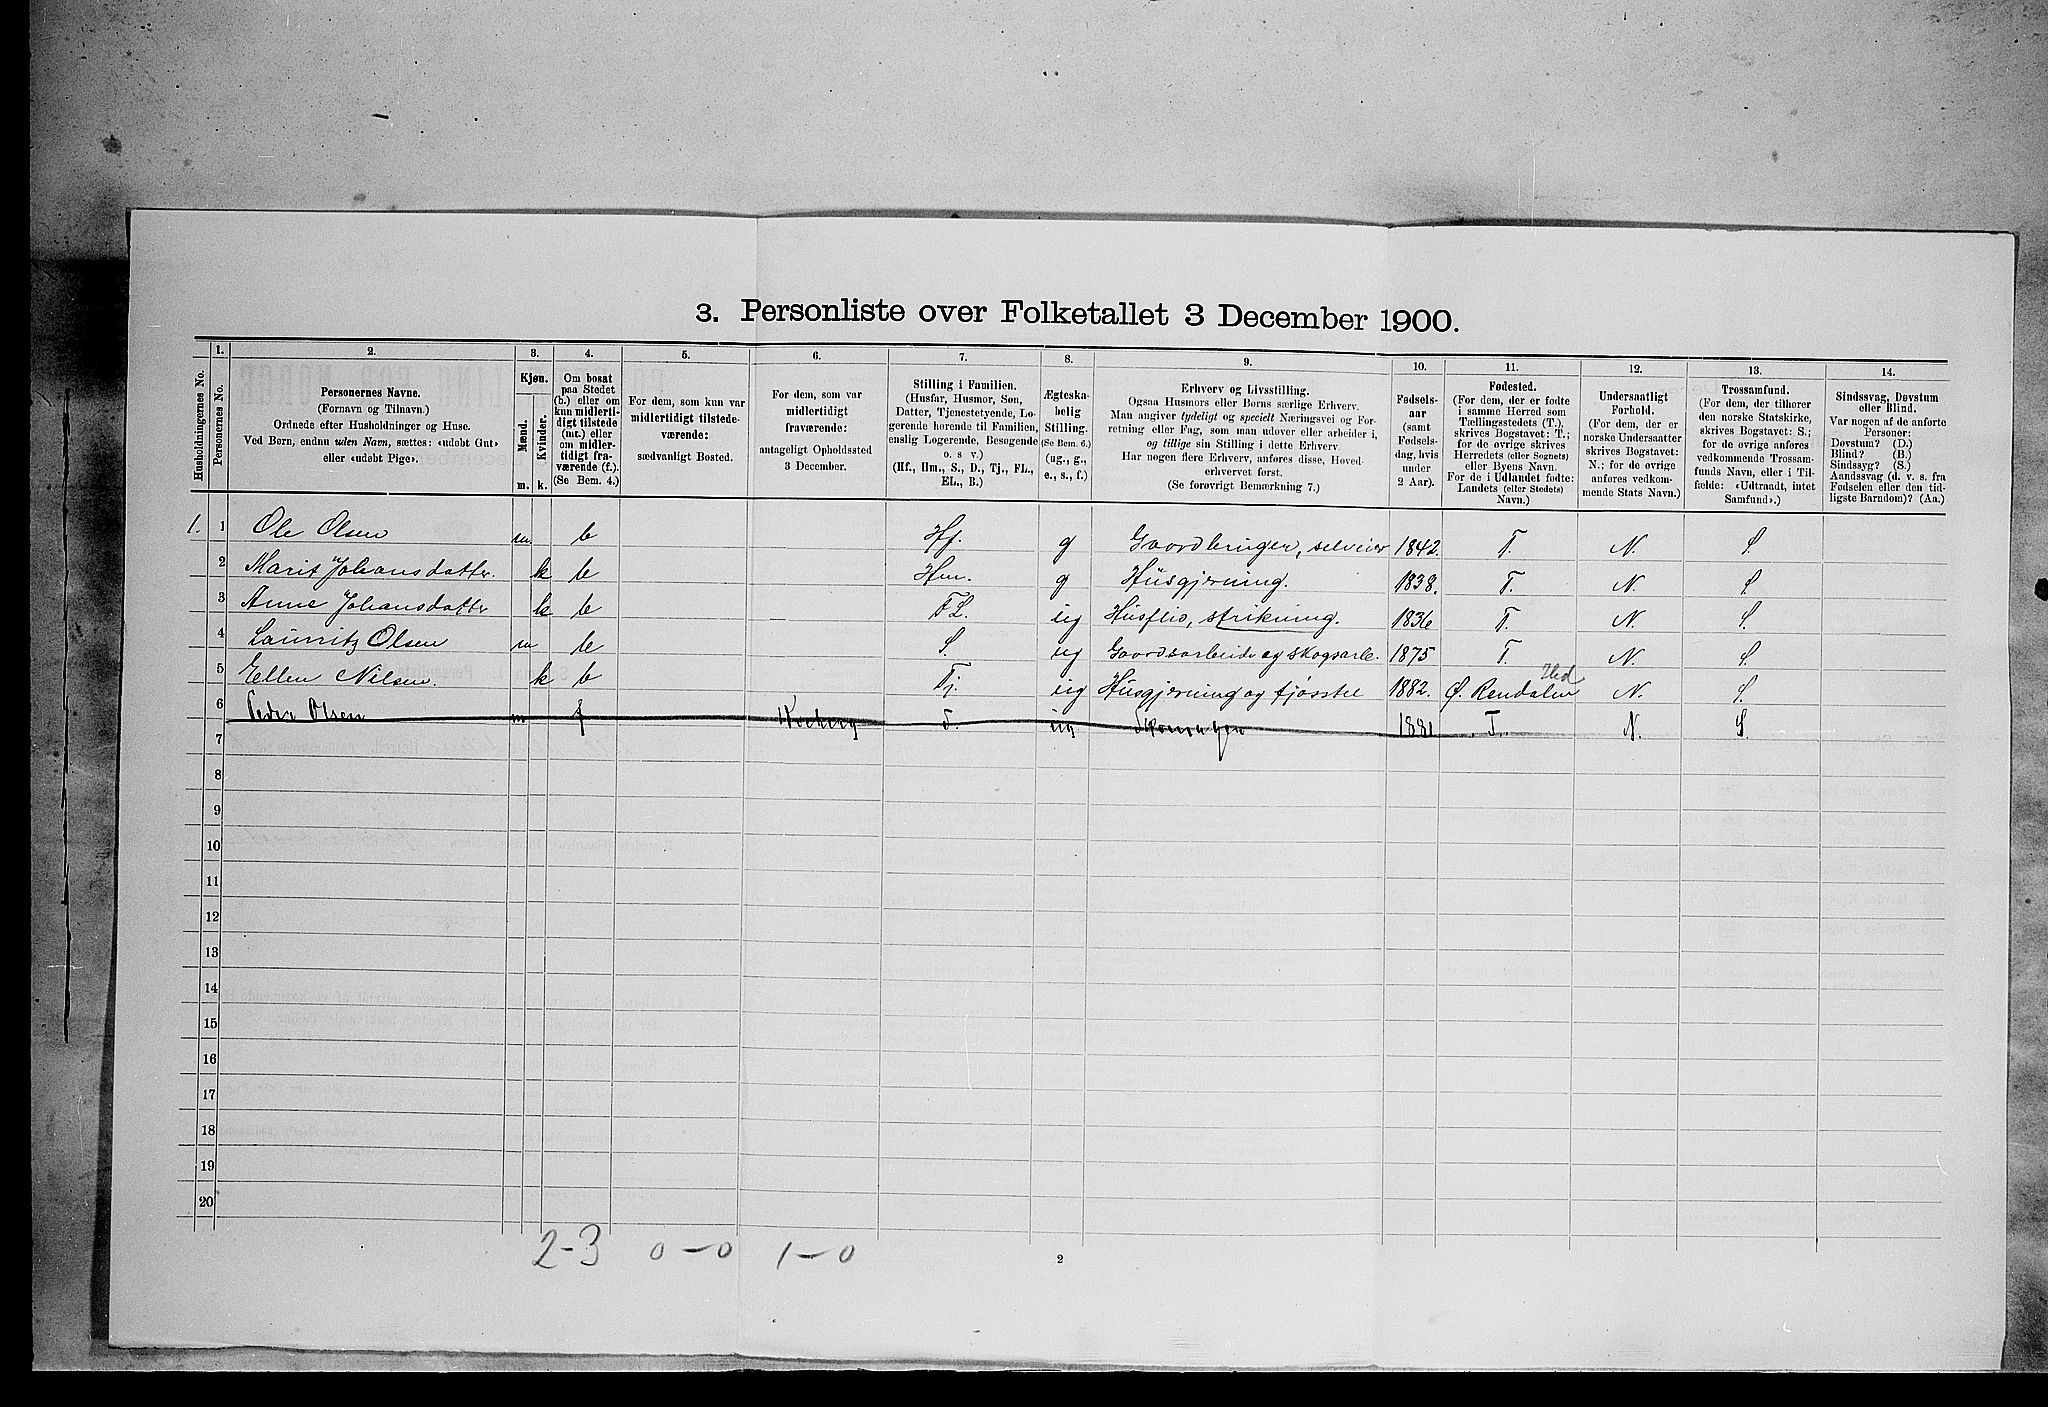 3. Personliste over Folketallet 3 December 1900.
Husholdningernes No.
1.
Personernes No.
2.
Personernes Navne.
(Fornavn og Tilnavn.)
Ordnede efter Husholdninger og Huse.
Ved Børn, endnu uden Navn, sættes: «udøbt Gut»
eller «udøbt Pige».
3.
Kjøn.
Mænd.
Kvinder.
m. k.
4.
Om bosat
paa Stedet
(b.) eller om
kun midlerti-
digt tilstede
(mt.) eller
om midler-
tidigt fra-
værende (f.).
(Se Bem. 4.)
5.
For dem, som kun var
midlertidigt tilstede-
værende:
sædvanligt Bosted.
6.
For dem, som var
midlertidigt
fraværende:
antageligt Opholdssted
3 December.
7.
Stilling i Familien.
(Husfar, Husmor, Søn,
Datter, Tjenestetyende, Lo-
gerende hørende til Familien,
enslig Logerende, Besøgende
o. s. v.)
(Hf., Hm., S., D., Tj., FL.,
EL., B.)
8.
Ægteska-
belig
Stilling.
(Se Bem. 6.)
(ug., g.,
e., s., f.)
9.
Erhverv og Livsstilling.
Ogsaa Husmors eller Børns særlige Erhverv.
Man angiver tydeligt og specielt Næringsvei og For-
retning eller Fag, som man udøver eller arbeider i,
og tillige sin Stilling i dette Erhverv.
Har nogen flere Erhverv, anføres disse, Hoved-
erhvervet først.
(Se forøvrigt Bemærkning 7.)
10.
Fødsels-
aar
(samt
Fødsels-
dag, hvis
under
2 Aar).
11.
Fødested.
(For dem, der er fødte
i samme Herred som
Tællingsstedets (T.),
skrives Bogstavet: T.;
for de øvrige skrives
Herredets (eller Sognets)
eller Byens Navn.
For de i Udlandet fødte:
Landets (eller Stedets)
Navn.)
12.
Undersaatligt
Forhold.
(For dem, der er
norske Undersaatter
skrives Bogstavet:
N.; for de øvrige
anføres vedkom-
mende Stats Navn.)
13.
Trossamfund.
(For dem, der tilhører
den norske Statskirke,
skrives Bogstavet: S.;
for de øvrige anføres
vedkommende Trossam-
funds Navn, eller i Til-
fælde: «Udtraadt, intet
Samfund».)
14.
Sindssvag, Døvstum
eller Blind.
Var nogen af de anførte
Personer:
Døvstum? (D.)
Blind? (B.)
Sindssyg? (S.)
Aandssvag (d. v. s. fra
Fødselen eller den tid-
ligste Barndom)? (Aa.)
1. 1 Ole Olsen m b Hf. g Gaardbruger, selveier 1842. T. N. S.
2 Marit Johansdatter. k b Hm. g Husgjerning. 1838. T. N. S.
3 Anne Johansdatter k b FL. ug Husflid, strikning. 1836 T. N. S.
4 Lauritz Olsen m b S. ug Gaardsarbeide og skogsarb. 1875 T. N. S.
Hed
5 Ellen Nilsen. k b Tj. ug Husgjerning og fjøsstel 1882. Ø. Rendalen N. S.
6 Peder Olsen m f ug 1881 T. N. S.
7
8
9
10
11
12
13
14
15
16
17
18
19
20
2-3 0-0 1-0
2